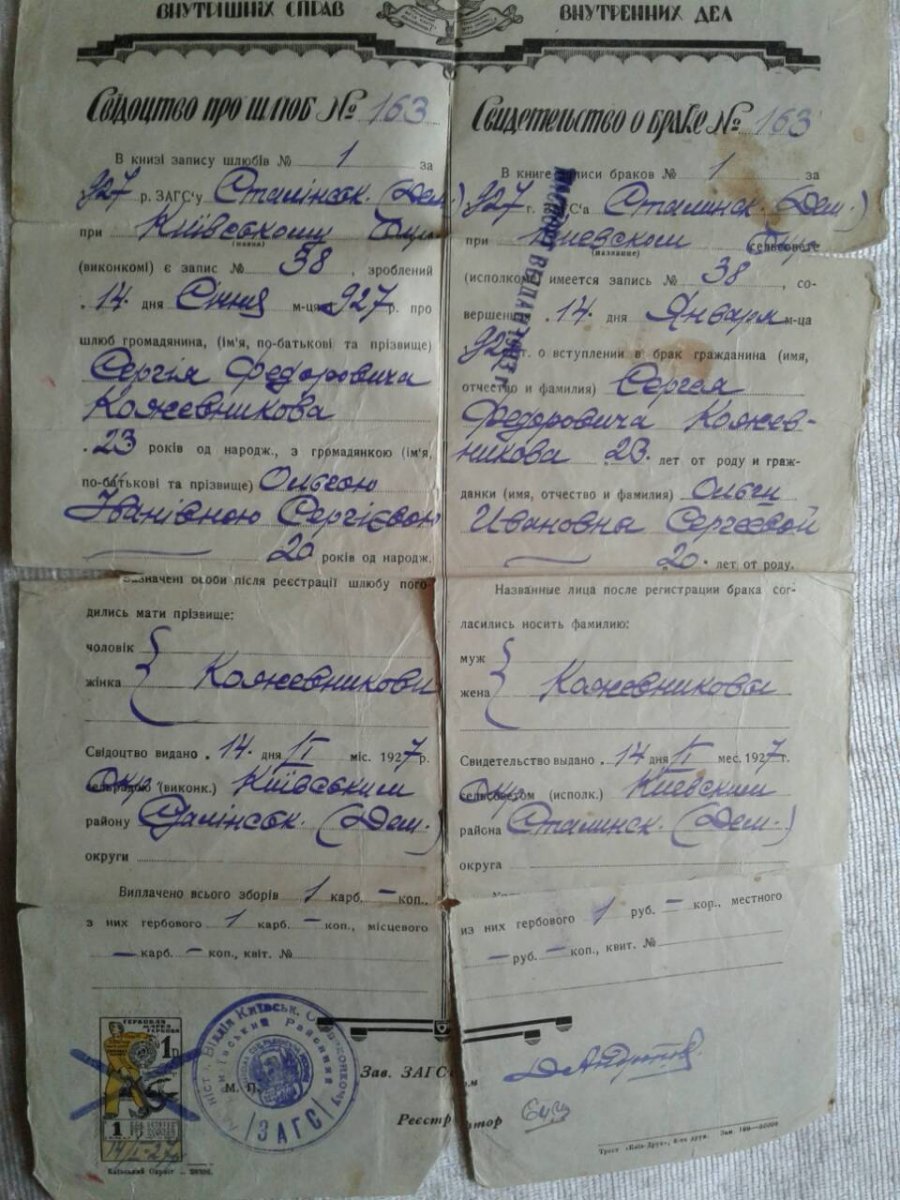 ВНУТРІШНІХ СПРАВ
Свідоцтво про шлюб № 163
В книзі запису шлюбів № 1 за
927 р. ЗАГС'у Сталінськ. (Дем.)
при Київському
(назва)
(виконкомі) є запис № 38, зроблений
14 дня Січня м-ця 927 р. про
шлюб громадянина, (ім'я, по-батькові та прізвище)
Сергія Федоровича
Кожевникова
23 років од народж., з громадянкою (ім'я,
по-батькові та прізвище) Ольгою
Іванівною Сергієвою
20 років од народж.
Зазначені особи після реєстрації шлюбу пого-
дились мати прізвище:
чоловік
жінка
Кожевникови
Свідоцтво видано 14 дня міс. 1927 р.
Окр. (виконк.) Київським
району Сталінськ. (Дем.)
округи
Виплачено всього зборів 1 карб. – коп.,
з них гербового 1 карб. – коп., місцевого
– карб. – коп., квіт. №
ГЕРБОВАЯ МАРКА
1 р
1
М. П.
ЗАГС
Київський Окрліт
ВНУТРЕННИХ ДЕЛ
Свидетельство о браке № 163
В книге записи браков № 1 за
927 г. ЗАГС'а Сталинск. (Дем.)
при Киевском (сельсовете
(название)
(исполкоме) имеется запись № 38, со-
вершенная 14 дня Января м-ца
927 г. о вступлении в брак гражданина (имя,
отчество и фамилия) Сергея
Федоровича Кожев-
никова 23 лет от роду и граж-
данки (имя, отчество и фамилия) Ольги
Ивановна Сергеевой
20 лет от роду.
Названные лица после регистрации брака сог-
ласились носить фамилию:
муж
жена
Кожевниковы
Свидетельство выдано 14 дня мес. 1927 г.
сельсоветом (исполк.) Киевским
района Сталинск. (Дем.)
округа
из них гербового 1 руб. – коп., местного
– руб. – коп., квит. №
Зав. ЗАГС
Реєстратор
Трест „Київ-Друк“, 6-та друк.